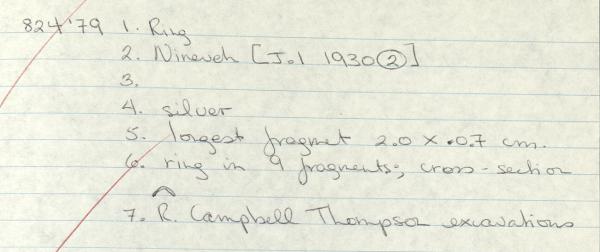 824'79 1. Ring
2. Nineveh [J.1 1930②]
3.
4. silver
5. longest fragmet 2.0 x .0.7 cm.
6. ring in 9 fragments; cross-section
7. R. Campbell Thompson excavations